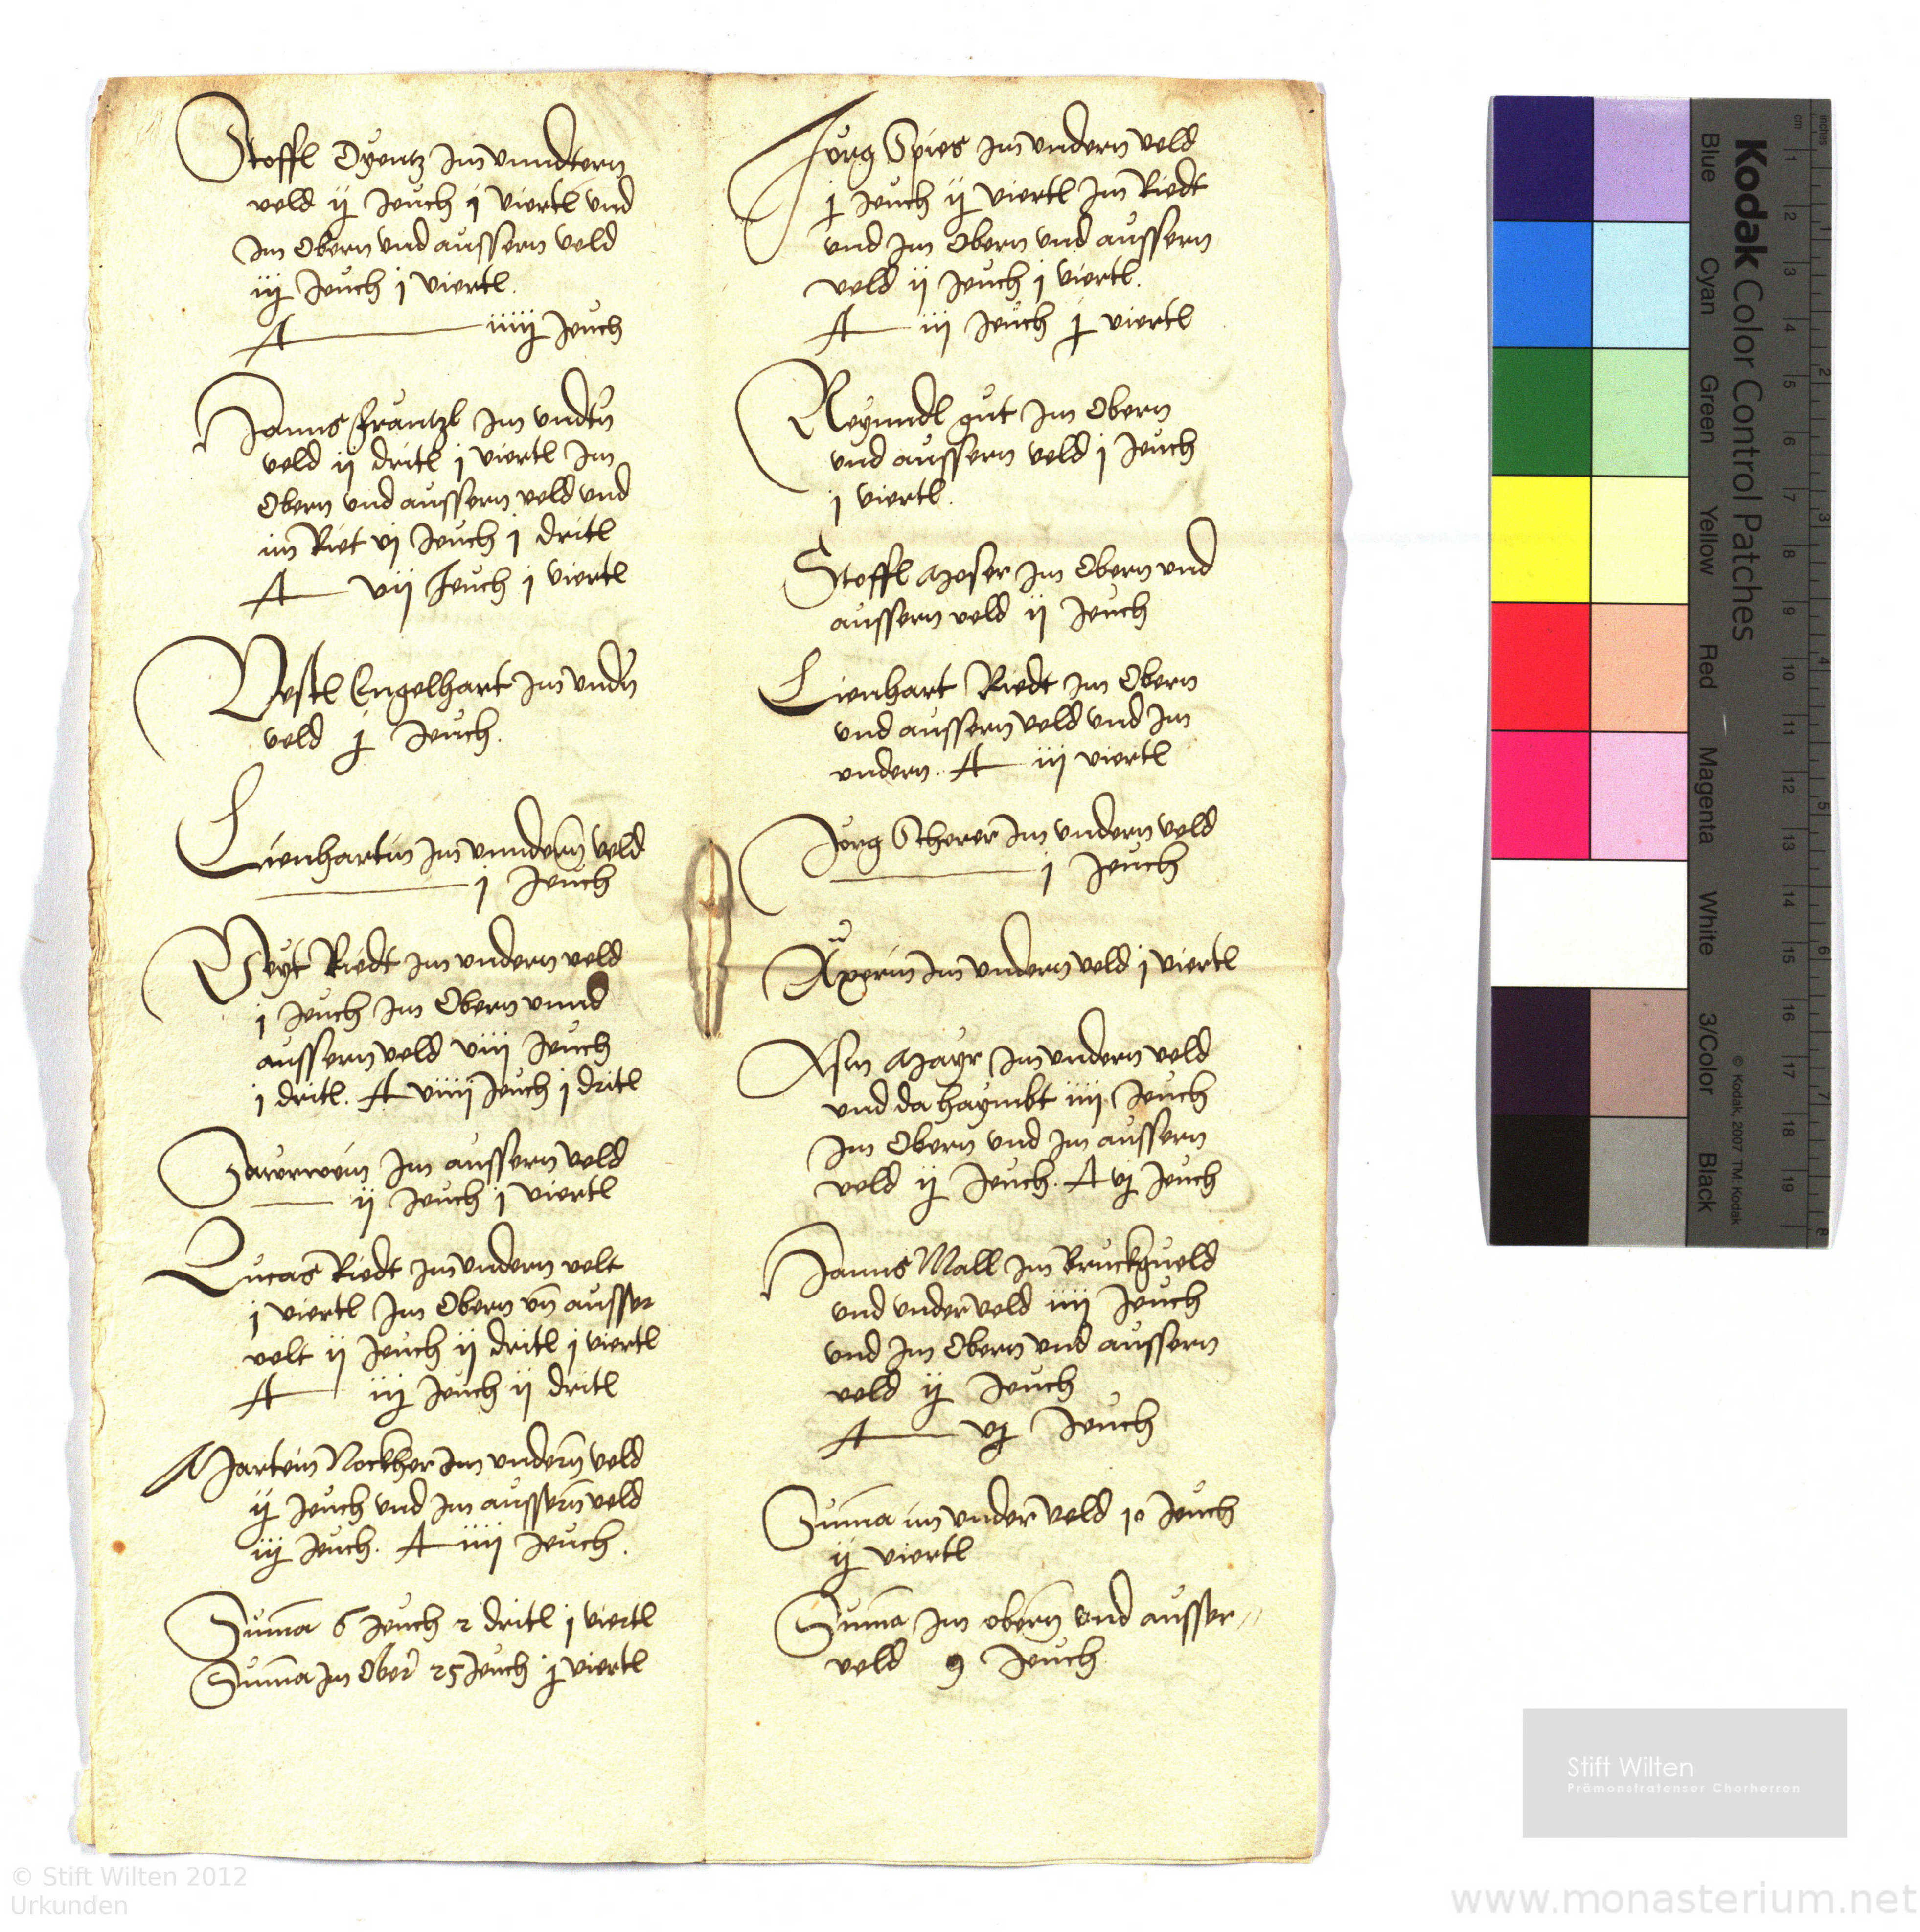 Stoffl Dyentz Im vnndtern
veld ij Jeuch j viertl vnd
Im Obern vnd aussern veld
iij Jeuch j viertl.
A iiiij Jeuch
Hanns Frantzl Im vndtn
veld ij dritl j viertl Im
Obern vnd aussern veld vnd
im Riet vj Jeuch j dritl
A vij Jeuch j viertl
Vestl Engelhart Im vndn
veld j Jeuch.
Lienhartin Im vnndern veld
j Jeuch
Veyt Riedt Im vndern veld
j Jeuch Im Obern vnnd
aussern veld viij Jeuch
j dritl. A viiij Jeuch j dritl
Im aussern veld
ij Jeuch j viertl
Lucas Riedt Im vndern velt
j viertl Im Obern vn ausser
velt ij Jeuch ij dritl j viertl
A iij Jeuch ij dritl
Martein Nockher Im vndern veld
ij Jeuch vnd Im aussern veld
iij Jeuch. A iiij Jeuch.
Suma 6 Jeuch 2 dritl j viertl
Suma Im Ober 25 Jeuch j viertl
Jörg Spies Im vndern veld
j Jeuch ij viertl Im Riedt
vnd Im Obern vnd aussern
veld ij Jeuch j viertl.
A iij Jeuch j viertl
Reyndl gut Im Obern
vnd aussern veld j Jeuch
j viertl.
Stoffl Moser Im Obern vnd
aussern veld ij Jeuch
Lienhart Riedt Im Obern
vnd aussern veld vnd Im
vndern. A iij viertl
Jorg Scherer Im vndern veld
j Jeuch
Im vndern veld j viertl
Asm Mayr Im vndern veld
vnd da haymbt iiij Jeuch
Im Obern vnd Im aussern
veld ij Jeuch. A vj Jeuch
Hanns Mall Im Bruckhueld
vnd vnder veld iiij Jeuch
vnd Im Obern vnd aussern
veld ij Jeuch
A vj Jeuch
Suma im vnder veld 10 Jeuch
ij viertl
Suma Im obern vnd ausser
veld 9 Jeuch
Kodak Color Control Patches
Blue Cyan Green Yellow Red Magenta White 3/Color Black
© Kodak, 2007 TM: Kodak
inches 1 2 3 4 5 6 7 8
cm 1 2 3 4 5 6 7 8 9 10 11 12 13 14 15 16 17 18 19
Stift Wilten
Prämonstratenser Chorherren
© Stift Wilten 2012
Urkunden
www.monasterium.net